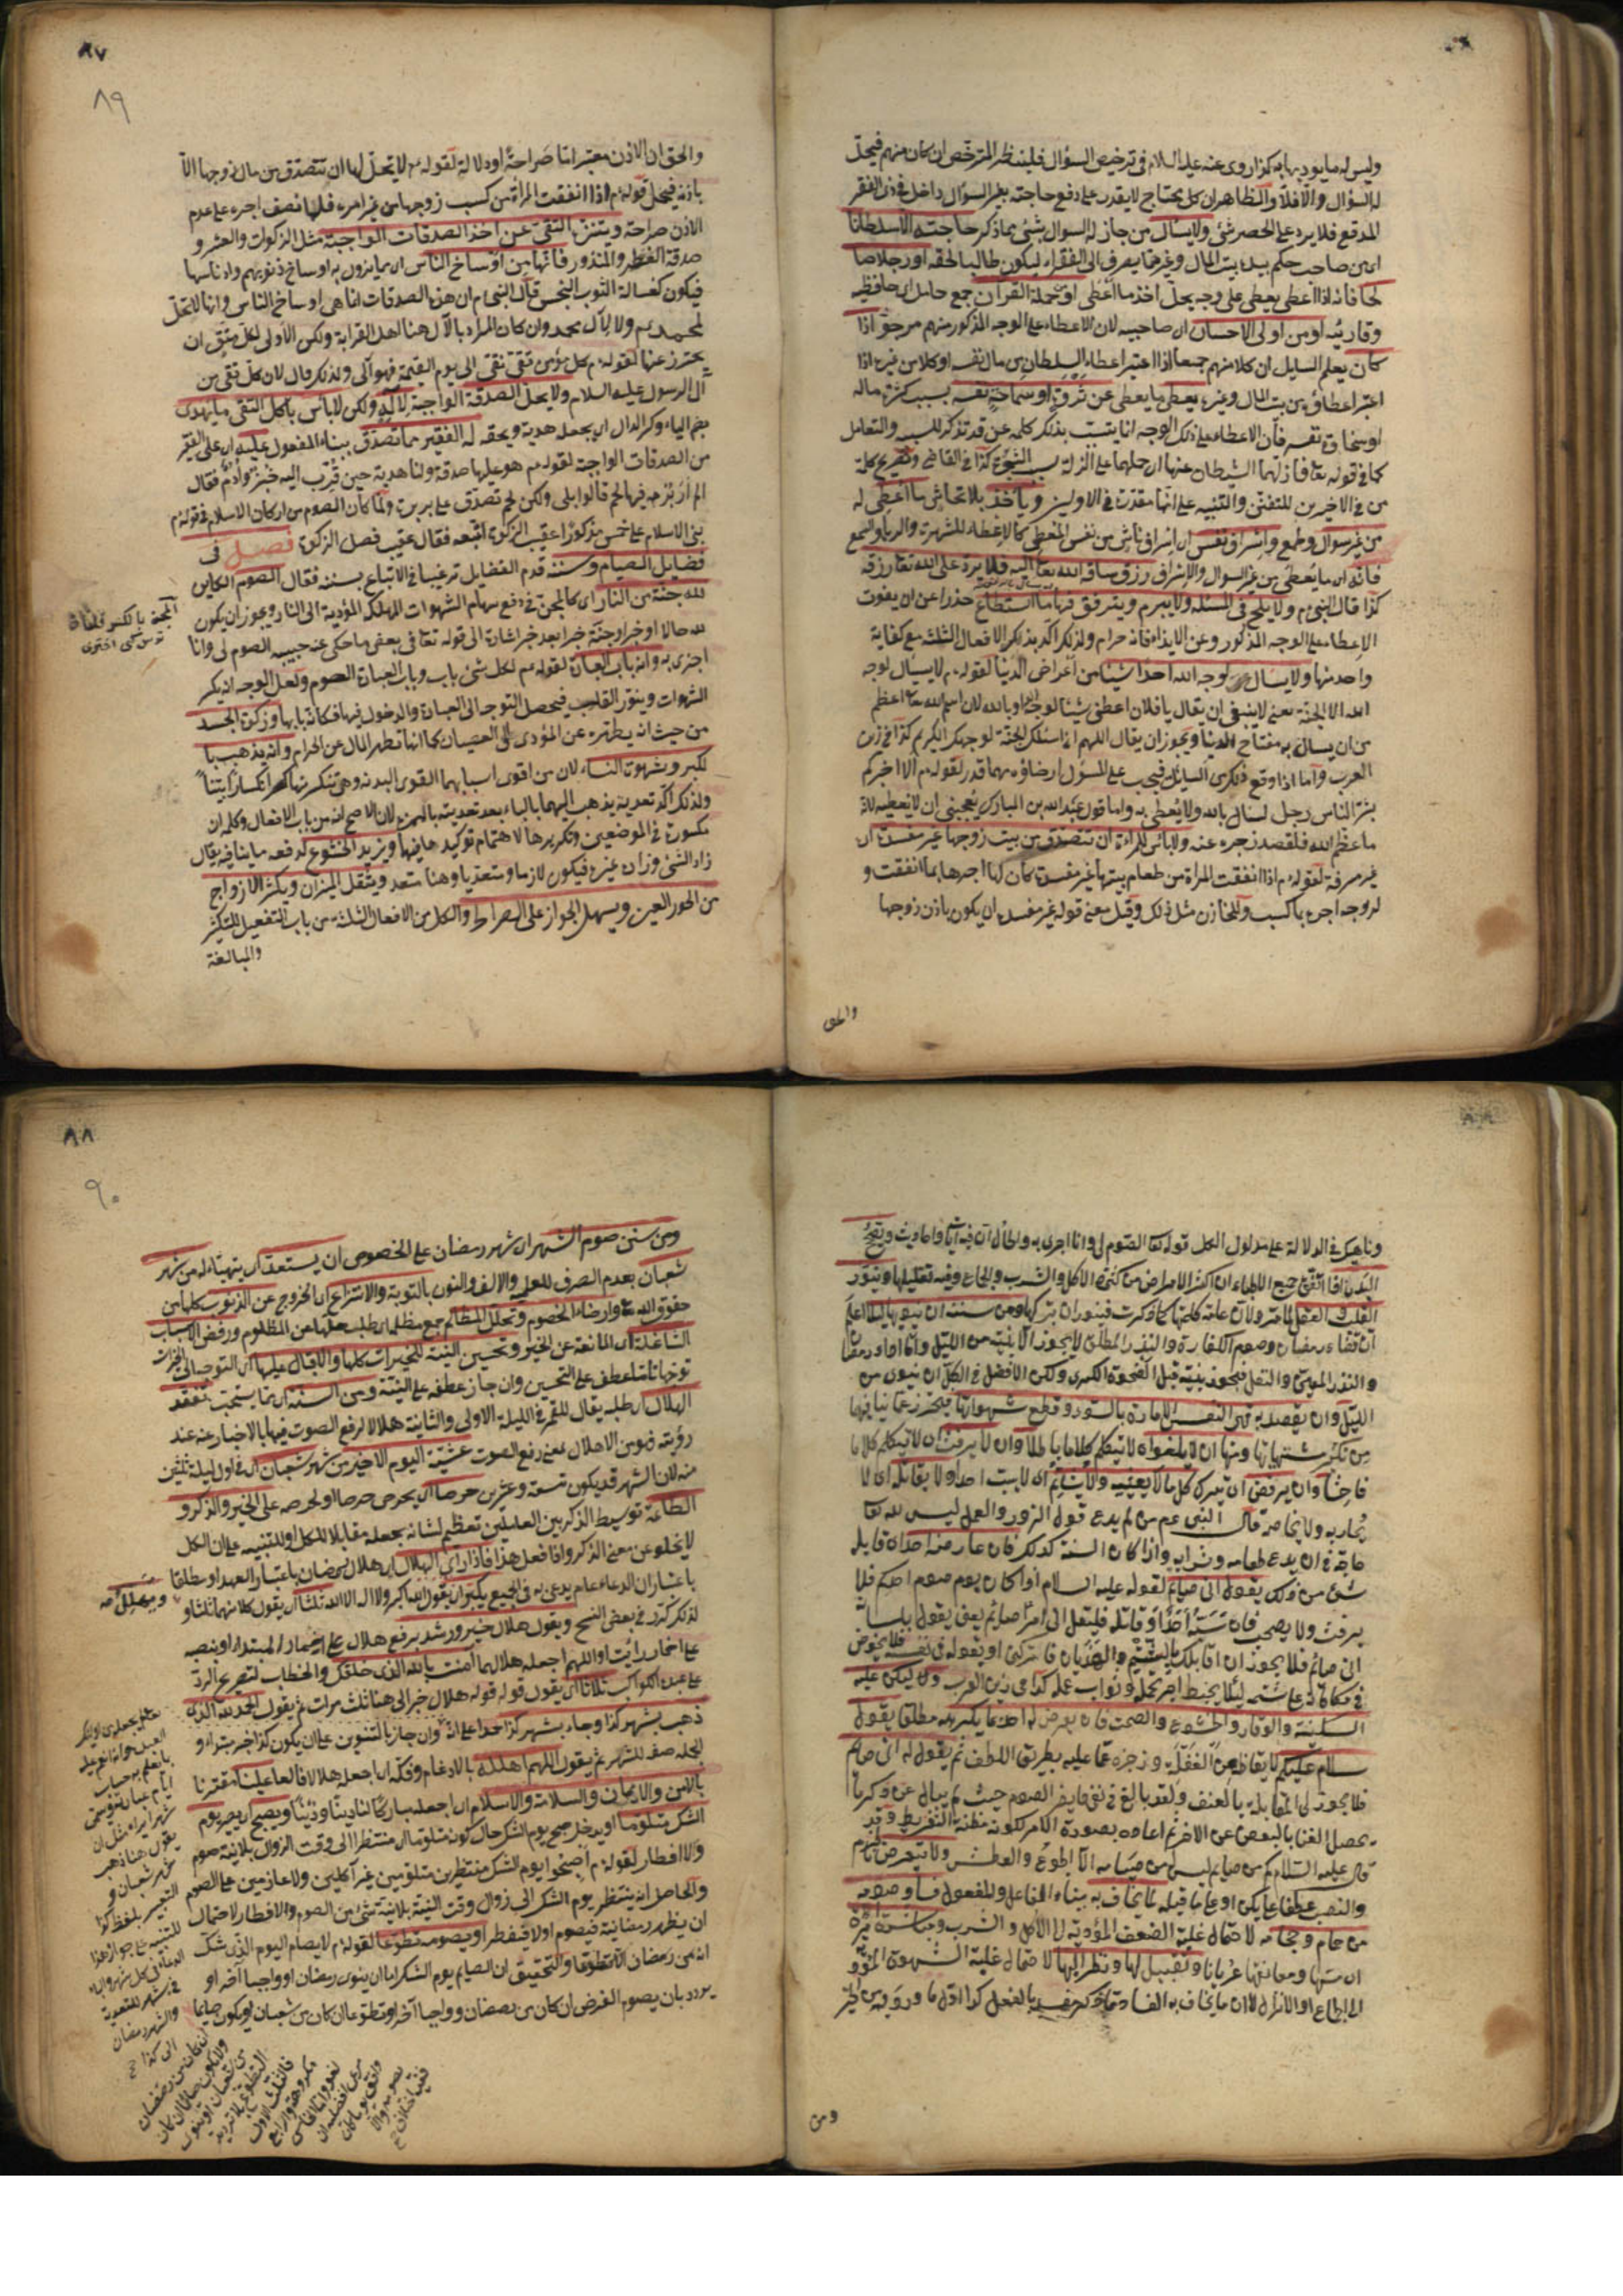 وليس له ما يوديها به كذا روى عنه عليه السلام في ترخيص السؤال فلينظر المترخص ان كان منهم فيحل
له السؤال والا فلا والظاهر ان كل محتاج لا يقدر على دفع حاجته بغير السؤال داخل في ذي الفقر
المدقع فلا يرد على الحصر شئ ولا يسال من جاز له السوال بشئ مما ذكر حاجته الا سلطانا
اي من صاحب حكم بيده بيت المال وغيره مما يصرف الى الفقراء ليكون طالبا لحقه او رجلا صا
لحا فانه اذا اعطى يعطى على وجه يحل اخذ ما اعطى او من حملة القرآن جمع حامل اي حافظيه
وقارئيه او من اولى الاحسان اي صاحبيه لان الاعطاء على الوجه المذكور منهم مرجو اذا
كان يعلم السايل ان كلا منهم جمعا اذا اعتبر اعطاء السلطان من مال نفسه او كلا من غيره اذا
اعتبر اعطاؤه من بيت المال وغيره يعطى ما يعطى عن ثروة او سماحة نفسه بسبب كثرة ماله
او سخاوة نفسه فان الاعطاء على ذلك الوجه انما يتسبب بذلك كلمة عن قد تذكر للسببية والتعليل
كما في قوله تعا فازلهما الشيطان عنها اي حملهما على الزلة بسبب الشجرة كذا في القاضي وتصريح كلمة
من في الاخيرين للتفنن والتنبيه على انها مقدرة في الاولين وياخذ بلا تحاش ما اعطى له
من غير سوال وطمع واشراف نفس اي اشراف ناش من نفس المعطى كالاعطاء للشهرة والرياء والسمع
فانه اي ما يعطى من غير السوال والاشراف رزق ساقه الله تعا اليه فلا يرد على الله تعا رزقه
كذا قال النبي م ولا يلح في المسئلة ولا يبرم ويترفق فيها ما استطاع حذرا عن ان يفوت
الاعطاء على الوجه المذكور وعن الايذاء فانه حرام ولذلك اكد بذلك الافعال الثلثة مع كفاية
واحد منها ولا يسال لوجه الله احدا شيئا من اعراض الدنيا لقوله م لا يسال لوجه
الله الا الجنة يعني لا ينبغي ان يقال يا فلان اعطني شيئا لوجه الله او بالله لان اسم الله تعا اعظم
من ان يسال به متاع الدنيا ويجوز ان يقال اللهم انا نسئلك الجنة لوجهك الكريم كذا في زين
العرب واما اذا وقع ذلك من السايل فيجب على المسؤل ارضاؤه مهما قدر لقوله م الا اخبركم
بشر الناس رجل يسال بالله ولا يعطى به واما قول عبد الله بن المبارك يعجبني ان لا يعطيه لانه
ما عظم الله فلقصد زجره عنه ولا باس للمراة ان تتصدق من بيت زوجها غير مفسدة اي
غير مسرفة لقوله م اذا انفقت المراة من طعام بيتها غير مفسدة كان لها اجرها بما انفقت و
لزوجها اجره بما كسب وللخازن مثل ذلك وقيل معنى قوله غير مفسدة ان يكون باذن زوجها
والحق
٨٧
٨٩
والحق ان الاذن معتبر اما صراحة او دلالة لقوله م لا يحل لها ان تتصدق من مال زوجها الا
باذنه فيحمل قوله م اذا انفقت المراة من كسب زوجها من غير امره فلها نصف اجره على عدم
الاذن صراحة ويتنزه التقي عن اخذ الصدقات الواجبة مثل الزكوات والعشر و
صدقة الفطر والمنذور فانها من اوساخ الناس اي مما يزول به اوساخ ذنوبهم وادناسها
فيكون كغسالة الثوب النجس قال النبي م ان هذه الصدقات انما هي اوساخ الناس وانها لا تحل
لمحمد م ولا لآل محمد وان كان المراد بالآل هنا اهل القرابة ولكن الاولى لكل متق ان
يحترز عنها لقوله م كل مؤمن تقي نقي الى يوم القيمة فهو آلي ولذلك قال لان كل تقي من
آل الرسول عليه السلام ولا يحل الصدقة الواجبة لآله ولكن لا باس باكل التقي ما يهدى
بضم الياء وكسر الدال اي يجعله هدية ويحقه له الفقير مما تصدق ببناء المفعول عليه اي على الفقير
من الصدقات الواجبة لقوله م هو عليها صدقة ولنا هدية حين قرب اليه خبز وادم فقال
الم ار برمة فيها لحم قالوا بلى ولكن لحم تصدق على بريرة ولما كان الصوم من اركان الاسلام في قوله م
بنى الاسلام على خمس مذكورا عقيب الزكوة اتبعه فقال عقيب فصل الزكوة فصل في
فضايل الصيام وسننه قدم الفضايل ترغيبا في الاتباع بسننه فقال الصوم الكاين
لله جنة من النار اي كالمجن في دفع سهام الشهوات المهلكة المؤدية الى النار ويجوز ان يكون
لله حالا او خبرا وجنة خبرا بعد خبر اشارة الى قوله تعا في بعض ما حكى عنه حبيبه الصوم لي وانا
اجزى به وانه باب العبادة لقوله م لكل شئ باب وباب العبادة الصوم ولعل الوجه انه يكسر
الشهوات وينور القلب فيحصل التوجه الى العبادة والدخول فيها فكانه بابها وزكوة الجسد
من حيث انه يطهره عن المؤدى الى العصيان كما انها تطهر المال عن الحرام وانه يذهب با
لكبر وشهوة النساء لان من اقوى اسبابهما القوى البدنية وهي تنكسر بها كسرا بينا
ولذلك اكد تعدية يذهب اليهما بالباء بعد تعديته بالهمزة لان الاصح انه من باب الافعال وكلمة ان
مكسورة في الموضعين وتكريرها لاهتمام توكيد ما فيها ويزيد الخشوع لدفعه ما ينافيه يقال
زاد الشئ وزاده غيره فيكون لازما ومتعديا وهنا متعد ويثقل الميزان ويكثر الازواج
من الحور العين ويسهل الجواز على الصراط والكل من الافعال الثلثة من باب التفعيل للتكثير
والمبالغة
الجنة بالكسر قلقان
وناهيك في الدلالة على مدلول الكل قوله تعا الصوم لي وانا اجزى به والحال ان فيه آيات واحاديث ويصح
البدن اذا اتفق جميع الاطباء ان اكثر الامراض من كثرة الاكل والشرب والجماع وفيه تقليلها وينور
ان قضاء رمضان وصوم الكفارة والنذر المطلق لا يجوز الا بنية من الليل واما اداء رمضان
والنذر المعين والنفل فيجوز بنية قبل الضحوة الكبرى ولكن الافضل في الكل ان ينوى من
الليل وان يقصد به قهر النفس الامارة بالسوء وقطع شهواتها فيحترز عما ينافيها
من تكثر مشتهياتها ومنها ان لا يلغو اي لا يتكلم كلاما باطلا وان لا يرفث اي لا يتكلم كلاما
فاحشا وان يرفض اي يترك كل ما لا يعنيه ولا يشاتم اي لا يسب احدا ولا يقاتله اي لا
يحاربه ولا يخاصمه قال النبي عم من لم يدع قول الزور والعمل ليس لله تعا
حاجة في ان يدع طعامه وشرابه واذا كان السنة كذلك فان عارضه احد اي قابله
شئ من ذلك يقول اني صائم لقوله عليه السلام اذا كان يوم صوم احدكم فلا
يرفث ولا يصخب فان سبه احد او قاتله فليقل اني امرء صائم يعني يقول بلسانه
اني صائم فلا يجوز ان اقابلك بالشتم والهذيان فاتركني او يقوله في نفسه فلا يخوض
في مكافاته على شتمه لئلا يحبط اجر تحمله وثواب عمله كذا في زين العرب وليكن عليه
السكينة والوقار والخشوع والصمت فان يعرض له احد بما يكره مطلقا يقول
سلام عليكم لايقاظه عن الغفلة وزجره عما عليه بطريق اللطف ثم يقول له اني صائم
فلا يجوز لي المقابلة بالعنف ولقد بالغ في نفي ما يضر الصوم حيث لم يبال عن ذكر ما
يحصل الغنا بالبعض عن الاخر ثم اعاده بصورة الامر لكونه مظنة التفريط وقد
قال عليه السلام كم من صايم ليس من صيامه الا الجوع والعطش ولا يتعرض بالجزم
والنصب عطفا على يكن او على ما قبله لما يخاف به ببناء الفاعل والمفعول فساد صومه
من حمام وحجامة لاحتمال غلبة الضعف المؤدية الى الاكل والشرب ومباشرة امراة
اي مسها ومعانقتها عريانا وتقبيل لها ونظر اليها لاحتمال غلبة الشهوة المؤدية
الى الجماع او الانزال
ومن
٨٨
٩٠
ومن سنن صوم الشهر اي شهر رمضان على الخصوص ان يستعد اي يتهياء له من شهر
شعبان بعدم الصرف للعلمية والالف والنون بالتوبة والانتزاع اي الخروج عن الذنوب كلها من
حقوق الله تعا وارضاء الخصوم وتحلل المظالم جمع مظلمة اي طلب حلها من المظلوم ورفض الاسباب
الشاغلة اي المانعة عن الخير وتحسين النية للخيرات كلها والاقبال عليها اي التوجه الى الخيرات
توجها تاما عطف على التحسين وان جاز عطفه على النية ومن السنة اي مما يستحب تفقد
الهلال اي طلبه يقال للقمر في الليلة الاولى والثانية هلالا لرفع الصوت فيها بالاخبار عنه عند
رؤيته فهو من الاهلال بمعنى رفع الصوت عشية اليوم الاخير من شهر شعبان اي في اول ليلة ثلثين
منه لان الشهر قد يكون تسعة وعشرين حرصا اي يحرص حرصا او لحرصه على الخير والذكر و
الطاعة توسيط الذكر بين العاملين تعظيم لشانه بجعله مقابلا للكل او للتنبيه على ان الكل
لا يخلو عن معنى الذكر واذا فعل هذا فاذا راى الهلال اي هلال رمضان باعتبار العهد او مطلقا
باعتبار ان الدعاء عام يدعى به في الجميع يكبر ان يقول الله اكبر ولا اله الا الله ثلثا اي يقول كلا منهما ثلثا و
ويهلل صح
لذلك كرر في بعض النسخ ويقول هلال خير ورشد برفع هلال على اضمار المبتداء او بنصبه
على اضمار رأيت او اللهم اجعله هلالهما آمنت بالله الذي خلقك والخطاب لتصريح الرد
على عبدة الكواكب ثلاثا اي يقول قوله هلال خير الى هنا ثلث مرات ثم يقول الحمد لله الذي
ذهب بشهر كذا وجاء بشهر كذا
الجملة صفة للشهر ثم يقول اللهم اهلله بالادغام وفكه اي اجعله هلالا طالعا علينا مقترنا
بالامن والايمان والسلامة والاسلام اي اجعله مباركا لنا دينا ودنيا ويصبح اي يصير يوم
الشك متلوما او يدخل صبح يوم الشك حال كونه متلوما اي منتظرا الى وقت الزوال بلا نية صوم
ولا افطار لقوله م اصبحوا يوم الشك منتظرين متلومين غير آكلين ولا عازمين على الصوم
والحاصل انه ينتظر يوم الشك الى زوال وقت النية بلا نية شئ من الصوم والافطار لاحتمال
ان يظهر رمضانيته فيصوم اولا فيفطر او يصومه تطوعا لقوله م لا يصام اليوم الذي شك
انه من رمضان الا تطوعا والتحقيق ان الصايم يوم الشك اما ان ينوى رمضان او واجبا آخر او
يردد بان يصوم الفرض ان كان من رمضان وواجبا آخر او تطوعا ان كان من شعبان